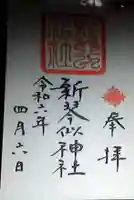 奉拝
新琴似神社
令和六年
四月六日